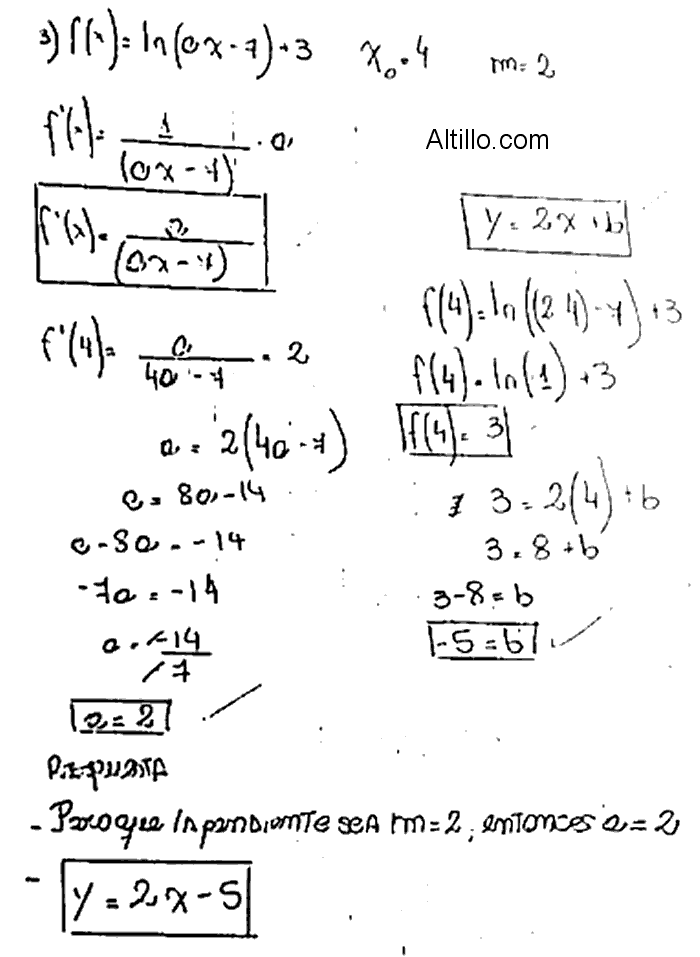 3) f(x) = ln(ax - 7) + 3   x₀ = 4   m = 2
Altillo.com
f'(x) = 1/(ax - 7) · a
f'(x) = a/(ax - 7)
f'(4) = a/(4a - 7) = 2
a = 2(4a - 7)
a = 8a - 14
a - 8a = -14
-7a = -14
a = -14/-7
a = 2
y = 2x + b
f(4) = ln((2 4) - 7) + 3
f(4) = ln(1) + 3
f(4) = 3
3 = 2(4) + b
3 = 8 + b
3 - 8 = b
-5 = b
Respuesta
- Para que la pendiente sea m = 2, entonces a = 2
- y = 2x - 5